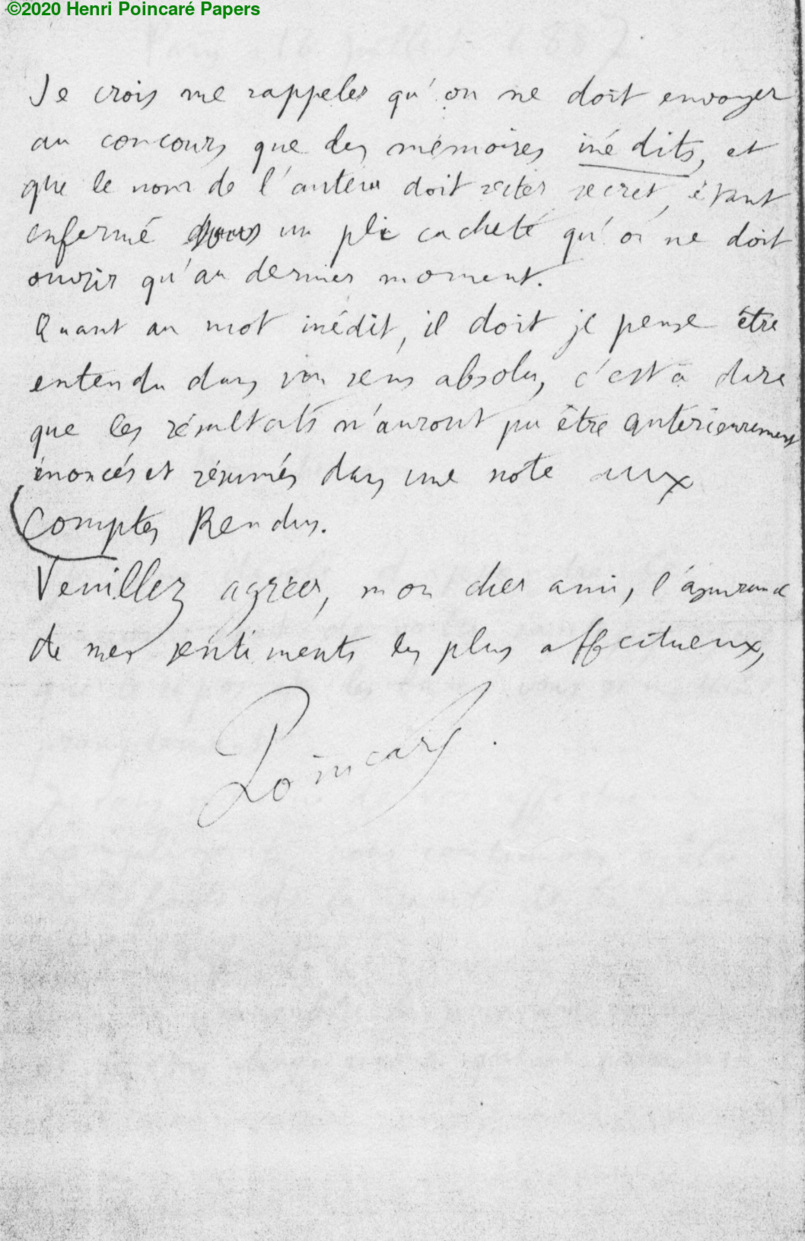 ©2020 Henri Poincaré Papers
Je crois me rappeler qu'on ne doit envoyer
au concours que des mémoires inédits, et
que le nom de l'auteur doit rester secret, étant
enfermé dans un pli cacheté qu'on ne doit
ouvrir qu'au dernier moment.
Quant au mot inédit, il doit je pense être
entendu dans son sens absolu, c'est à dire
que les résultats n'auront pu être antérieurement
énoncés et résumés dans une note aux
Comptes Rendus.
Veuillez agréer, mon cher ami, l'assurance
de mes sentiments les plus affectueux,
Poincaré.